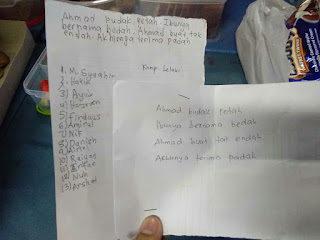 Ahmad budak petah. Ibunya
bernama bedah. Ahmad buat tak
endah. Akhirnya terima padah
Kump Lelaki
1. M. Syahir
2. Hakib
3) Ayub
4) Harsran
5) Firdaus
6) Amirul
7) Nik
8) Danish
9) Aiman
10) Raigan
11) Irfan
12) Nuh
13) Arshad
Ahmad budak petah
Ibunya bernama bedah
Ahmad buat tak endah
Akhirnya terima padah